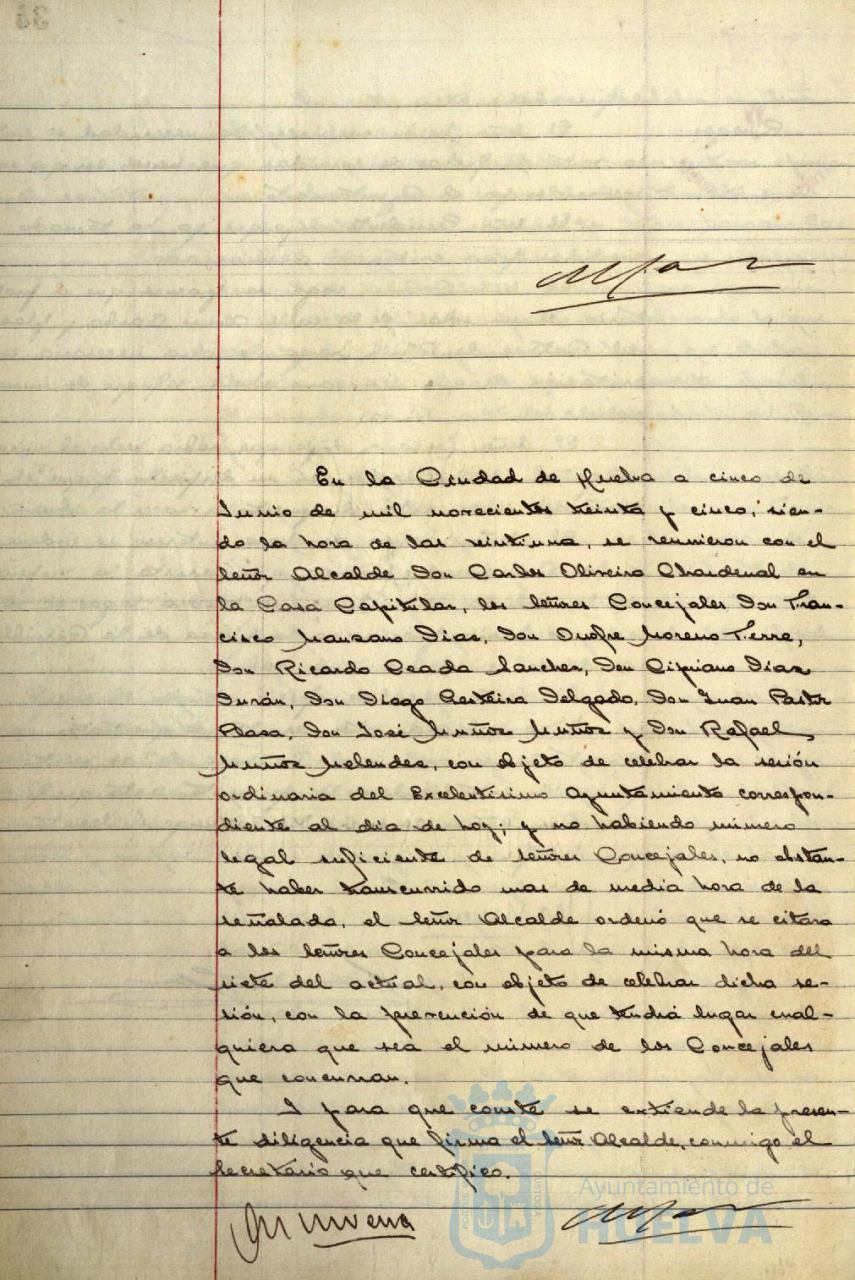 En la Ciudad de Huelva a cinco de
Junio de mil novecientos treinta y cinco, sien-
do la hora de las veintiuna, se reunieron con el
Señor Alcalde Don Carlos Oliveira Chardenal en
la Casa Capitular, los Señores Concejales Don Fran-
cisco Manzano Días, Don Onofre Moreno Terre,
Don Ricardo Ceada Sanchez, Don Cipriano Dias
Durán, Don Diego Delgado, Don Juan Pastor
Don José Muñoz Muñoz y Don Rafael
Muñoz Melendez, con objeto de celebrar la sesión
ordinaria del Excelentísimo Ayuntamiento correspon-
diente al día de hoy; y no habiendo número
legal suficiente de Señores Concejales, no obstan-
te haber transcurrido mas de media hora de la
señalada, el Señor Alcalde ordenó que se citara
a los Señores Concejales para la misma hora del
siete del actual, con objeto de celebrar dicha se-
sión, con la prevención de que tendrá lugar cual-
quiera que sea el número de los Concejales
que concurran.
Y para que conste se extiende la presen-
te diligencia que firma el Señor Alcalde, conmigo el
Secretario que certifico.
Ayuntamiento de
HUELVA